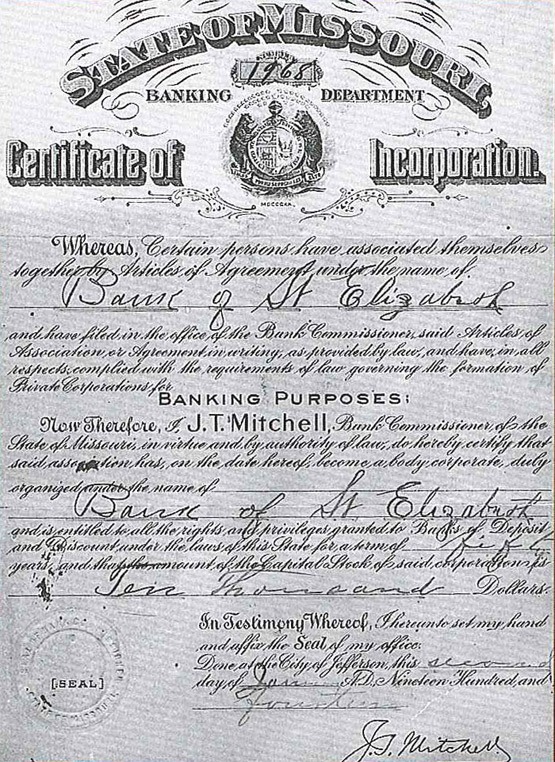 STATE OF MISSOURI,
NUMBER
1968
BANKING DEPARTMENT
Certificate of Incorporation.
MDCCCXX.
Whereas, Certain persons have associated themselves
together by Articles of Agreement under the name of
Bank of St Elizabeth
and have filed in the office of the Bank Commissioner, said Articles of
Association, or Agreement in writing, as provided by law, and have, in all
respects, complied with the requirements of law governing the formation of
Private Corporations for
BANKING PURPOSES:
Now Therefore, I, J.T. Mitchell, Bank Commissioner of the
State of Missouri, in virtue and by authority of law, do hereby certify that
said association has, on the date hereof, become a body corporate, duly
organized under the name of
Bank of St Elizabeth
and is entitled to all the rights and privileges granted to Banks of Deposit
and Discount, under the laws of this State for a term of fifty
years, and that the amount of the Capital Stock of said corporation is
Ten Thousand Dollars.
In Testimony Whereof, I hereunto set my hand
and affix the Seal of my office.
Done, at the City of Jefferson, this second
day of A.D. Nineteen Hundred, and
Fourteen
[SEAL]
J.T. Mitchell